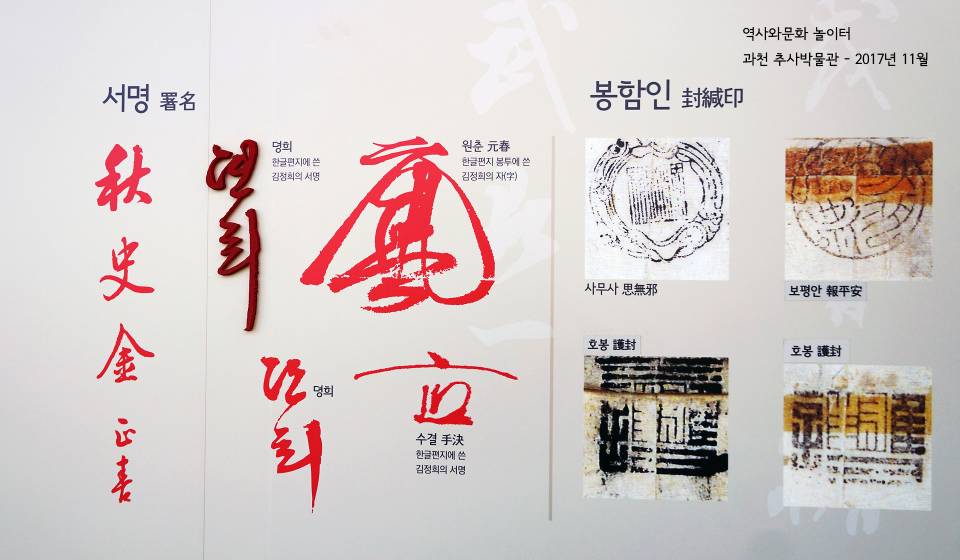 역사와문화 놀이터
과천 추사박물관 - 2017년 11월
서명 署名
秋
史
金
正
喜
명희
한글편지에 쓴
김정희의 서명
원춘 元春
한글편지 봉투에 쓴
김정희의 자(字)
명희
수결 手決
한글편지에 쓴
김정희의 서명
봉함인 封緘印
사무사 思無邪
보평안 報平安
호봉 護封
호봉 護封